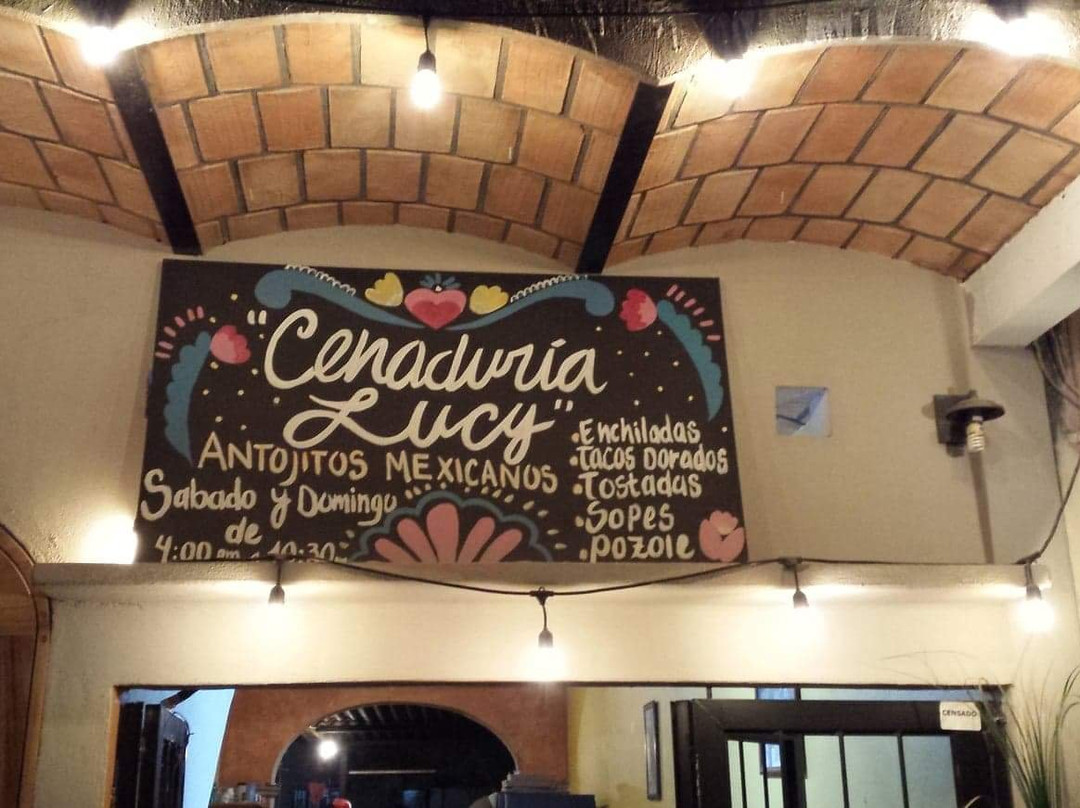 "Cenaduría
Lucy"
ANTOJITOS MEXICANOS
Sabado y Domingo
de
4:00 pm a 10:30
•Enchiladas
•Tacos Dorados
•Tostadas
•Sopes
•pozole
CENSADO